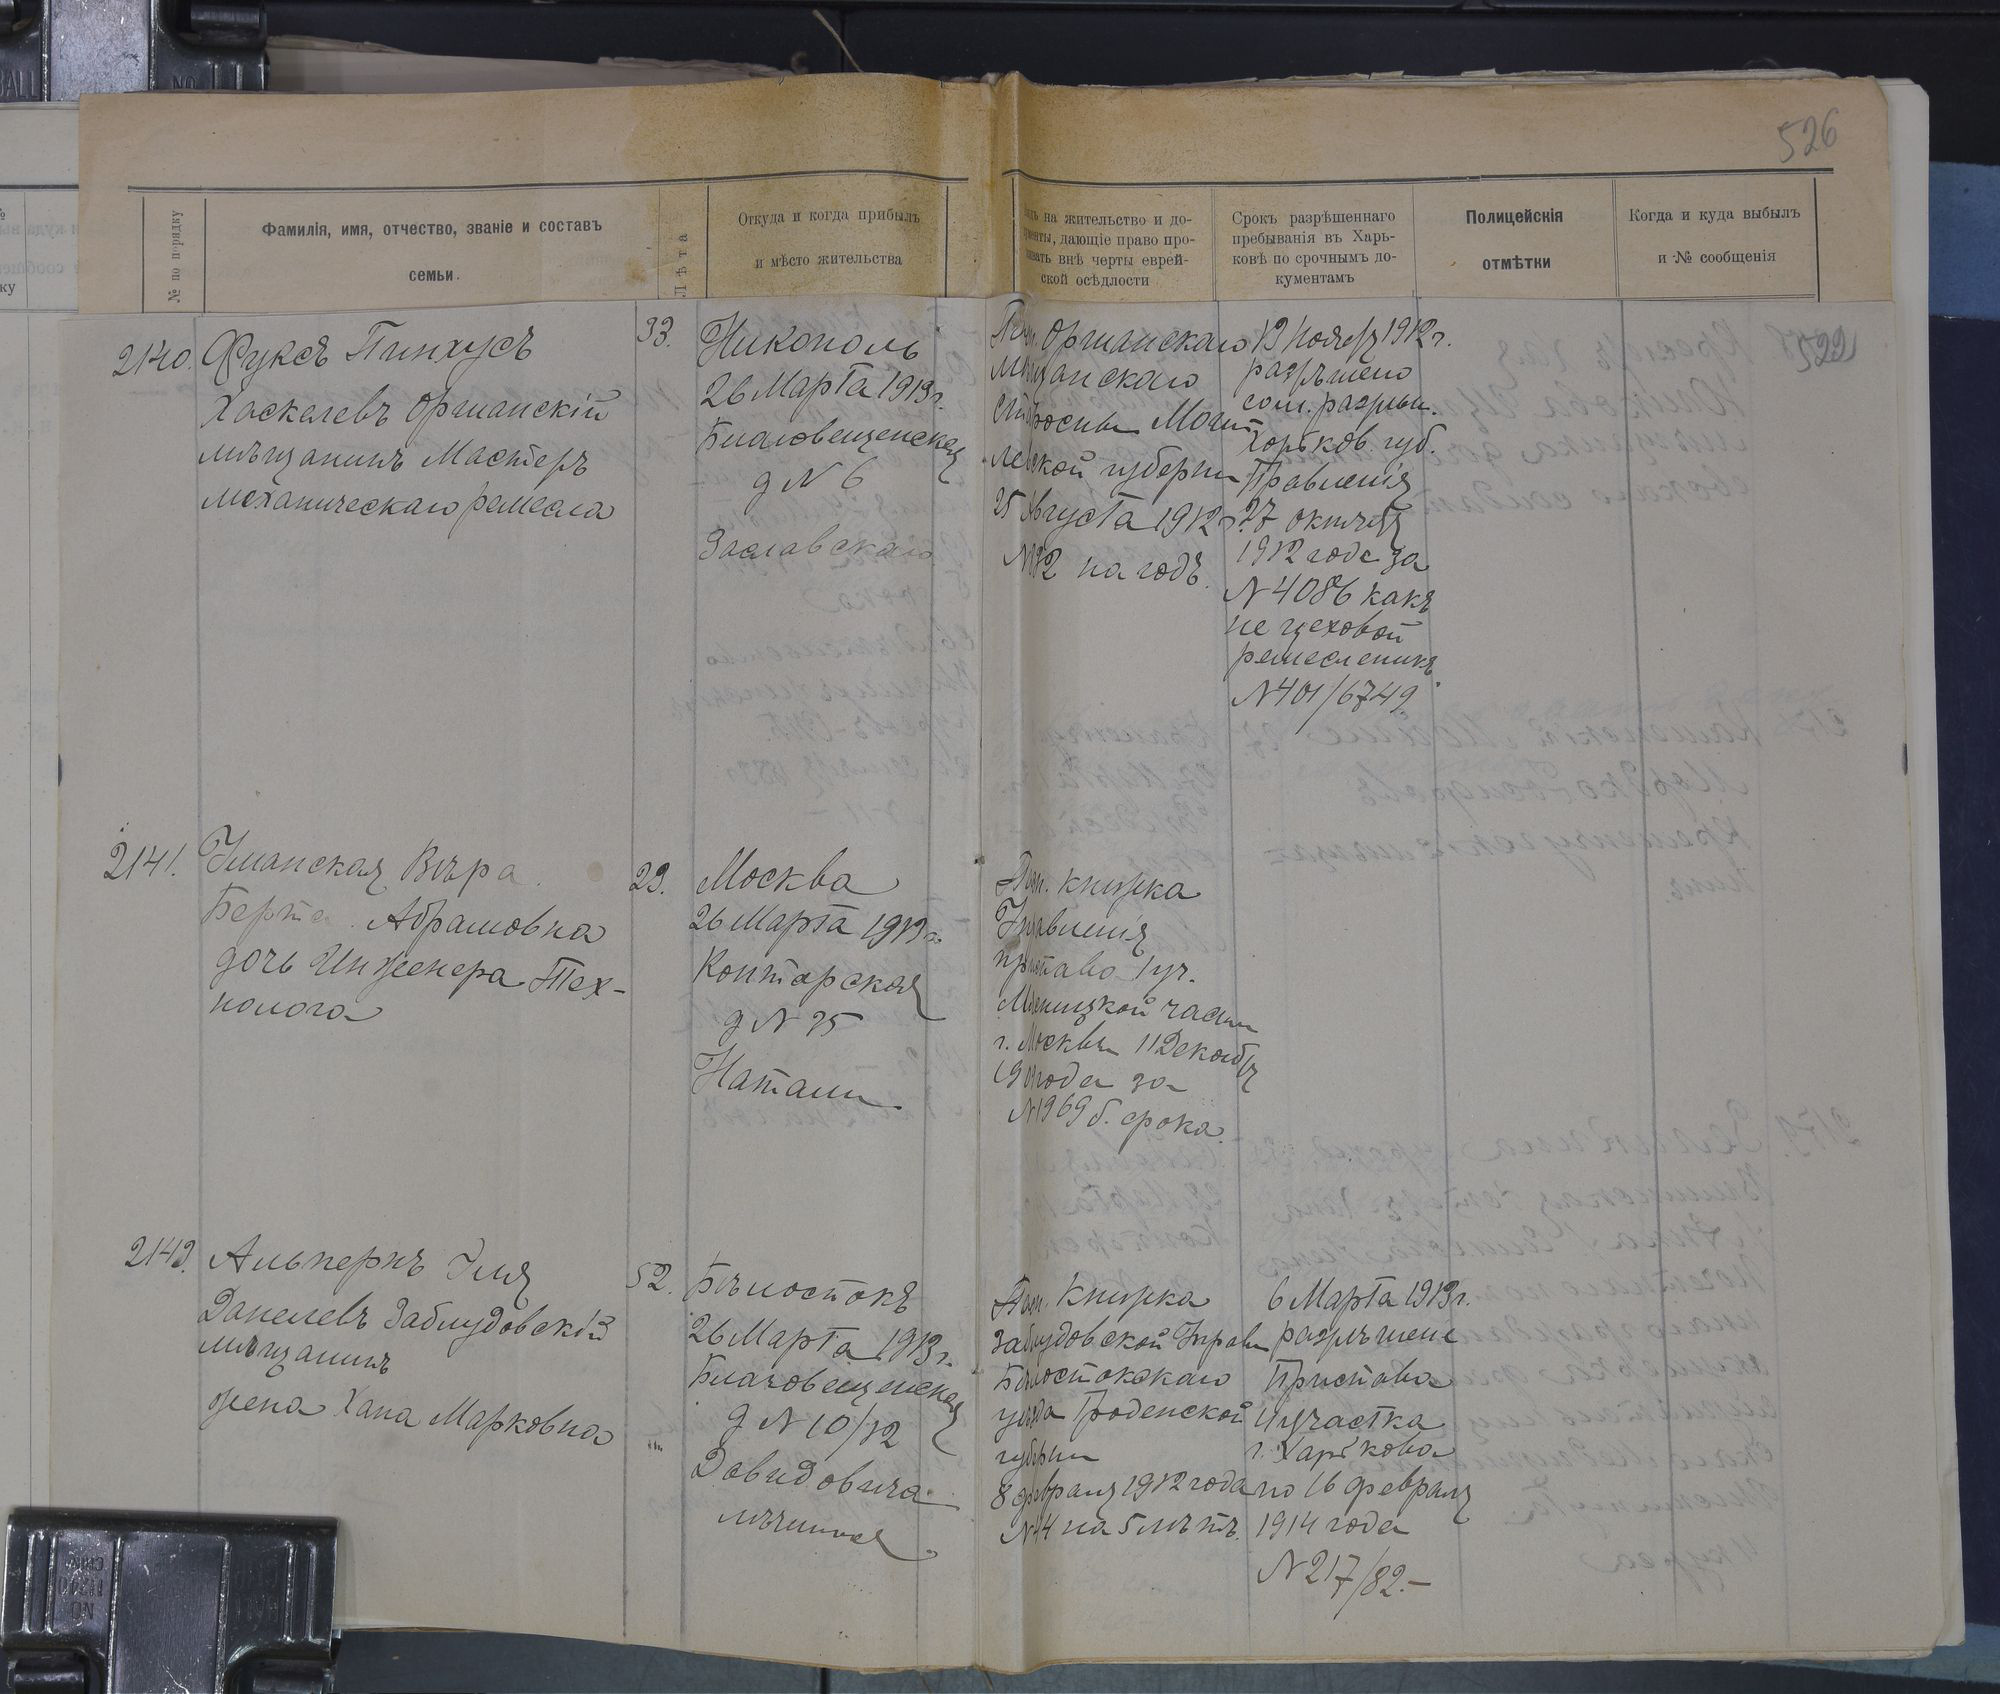 526
№ по порядку
Фамилія, имя, отчество, званіе и составъ
семьи.
Лѣта
Откуда и когда прибылъ
и мѣсто жительства
на жительство и до-
дающіе право про-
внѣ черты еврей-
ской осѣдлости
Срокъ разрѣшеннаго
пребыванія въ Харь-
ковѣ по срочнымъ до-
кументамъ
Полицейскія
отмѣтки
Когда и куда выбылъ
и № сообщенія
2140. Фуксъ Пинхусъ
Хаскелевъ Оршанскій
мѣщанинъ Мастеръ
механическаго ремесла
33.
Никополь
26 Марта 1913 г.
Благовещенская
д N 6
Заславскаго
Оршанскаго
Мѣщанскаго
Старосты Моги
левской губерніи
25 Августа 1912 г.
на годъ.
13 Ноября 1912 г.
разрѣшено
согл. разрѣш.
Харьков. губ.
Правленія
27 октября
1912 года за
N 4086 какъ
не цеховой
ремесленикъ
N 401/6749
2141. Уманская Вѣра
Берта Абрамовна
дочь Инженера Тех-
нолога
23.
Москва
26 Марта 1913 г.
Конторская
д N 35
Натали
книжка
Управленія
пристава 1 уч.
Мясницкой части
г. Москвы 11 Декабря
года за
N 1969 б. срока.
Альпернъ Илья
Данелевъ Заблудовскій
мѣщанинъ
жена Хана Марковна
52.
Бѣлостокъ
26 Марта 1913 г.
Благовещенская
д N 10/12
Давидовича
книжка
Заблудовской Управы
Бѣлостокскаго
уѣзда Гроденской
губерніи
8 февраля 1912 года
N 44 на 5 лѣтъ.
6 Марта 1913 г.
разрѣшене
Пристава
участка
г. Харькова
по 16 февраля
1914 года
N 217/82.-